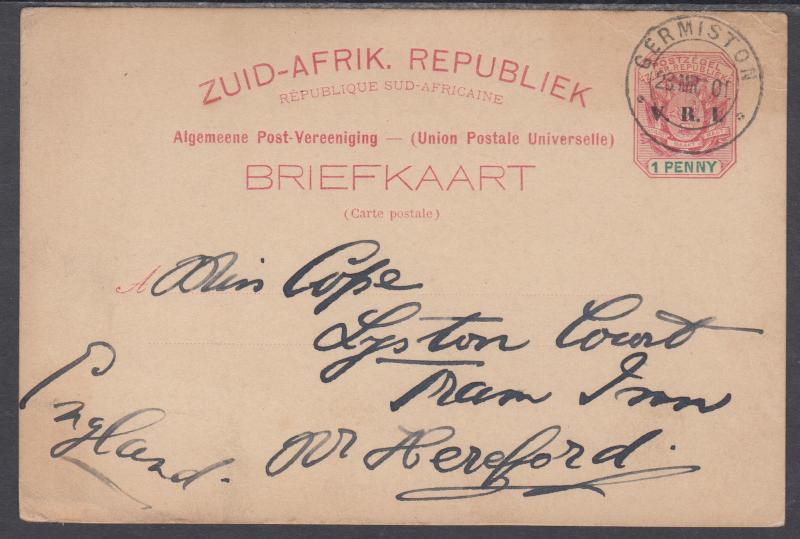 ZUID-AFRIK. REPUBLIEK
RÉPUBLIQUE SUD-AFRICAINE
Algemeene Post-Vereeniging — (Union Postale Universelle)
BRIEFKAART
(Carte postale)
GERMISTON
POSTZEGEL
Z. AFR. REPUBLIEK
01
V. R. I.
1 PENNY
A Miss Cope
Lyston Court
Tram Inn
Nr Hereford.
England.